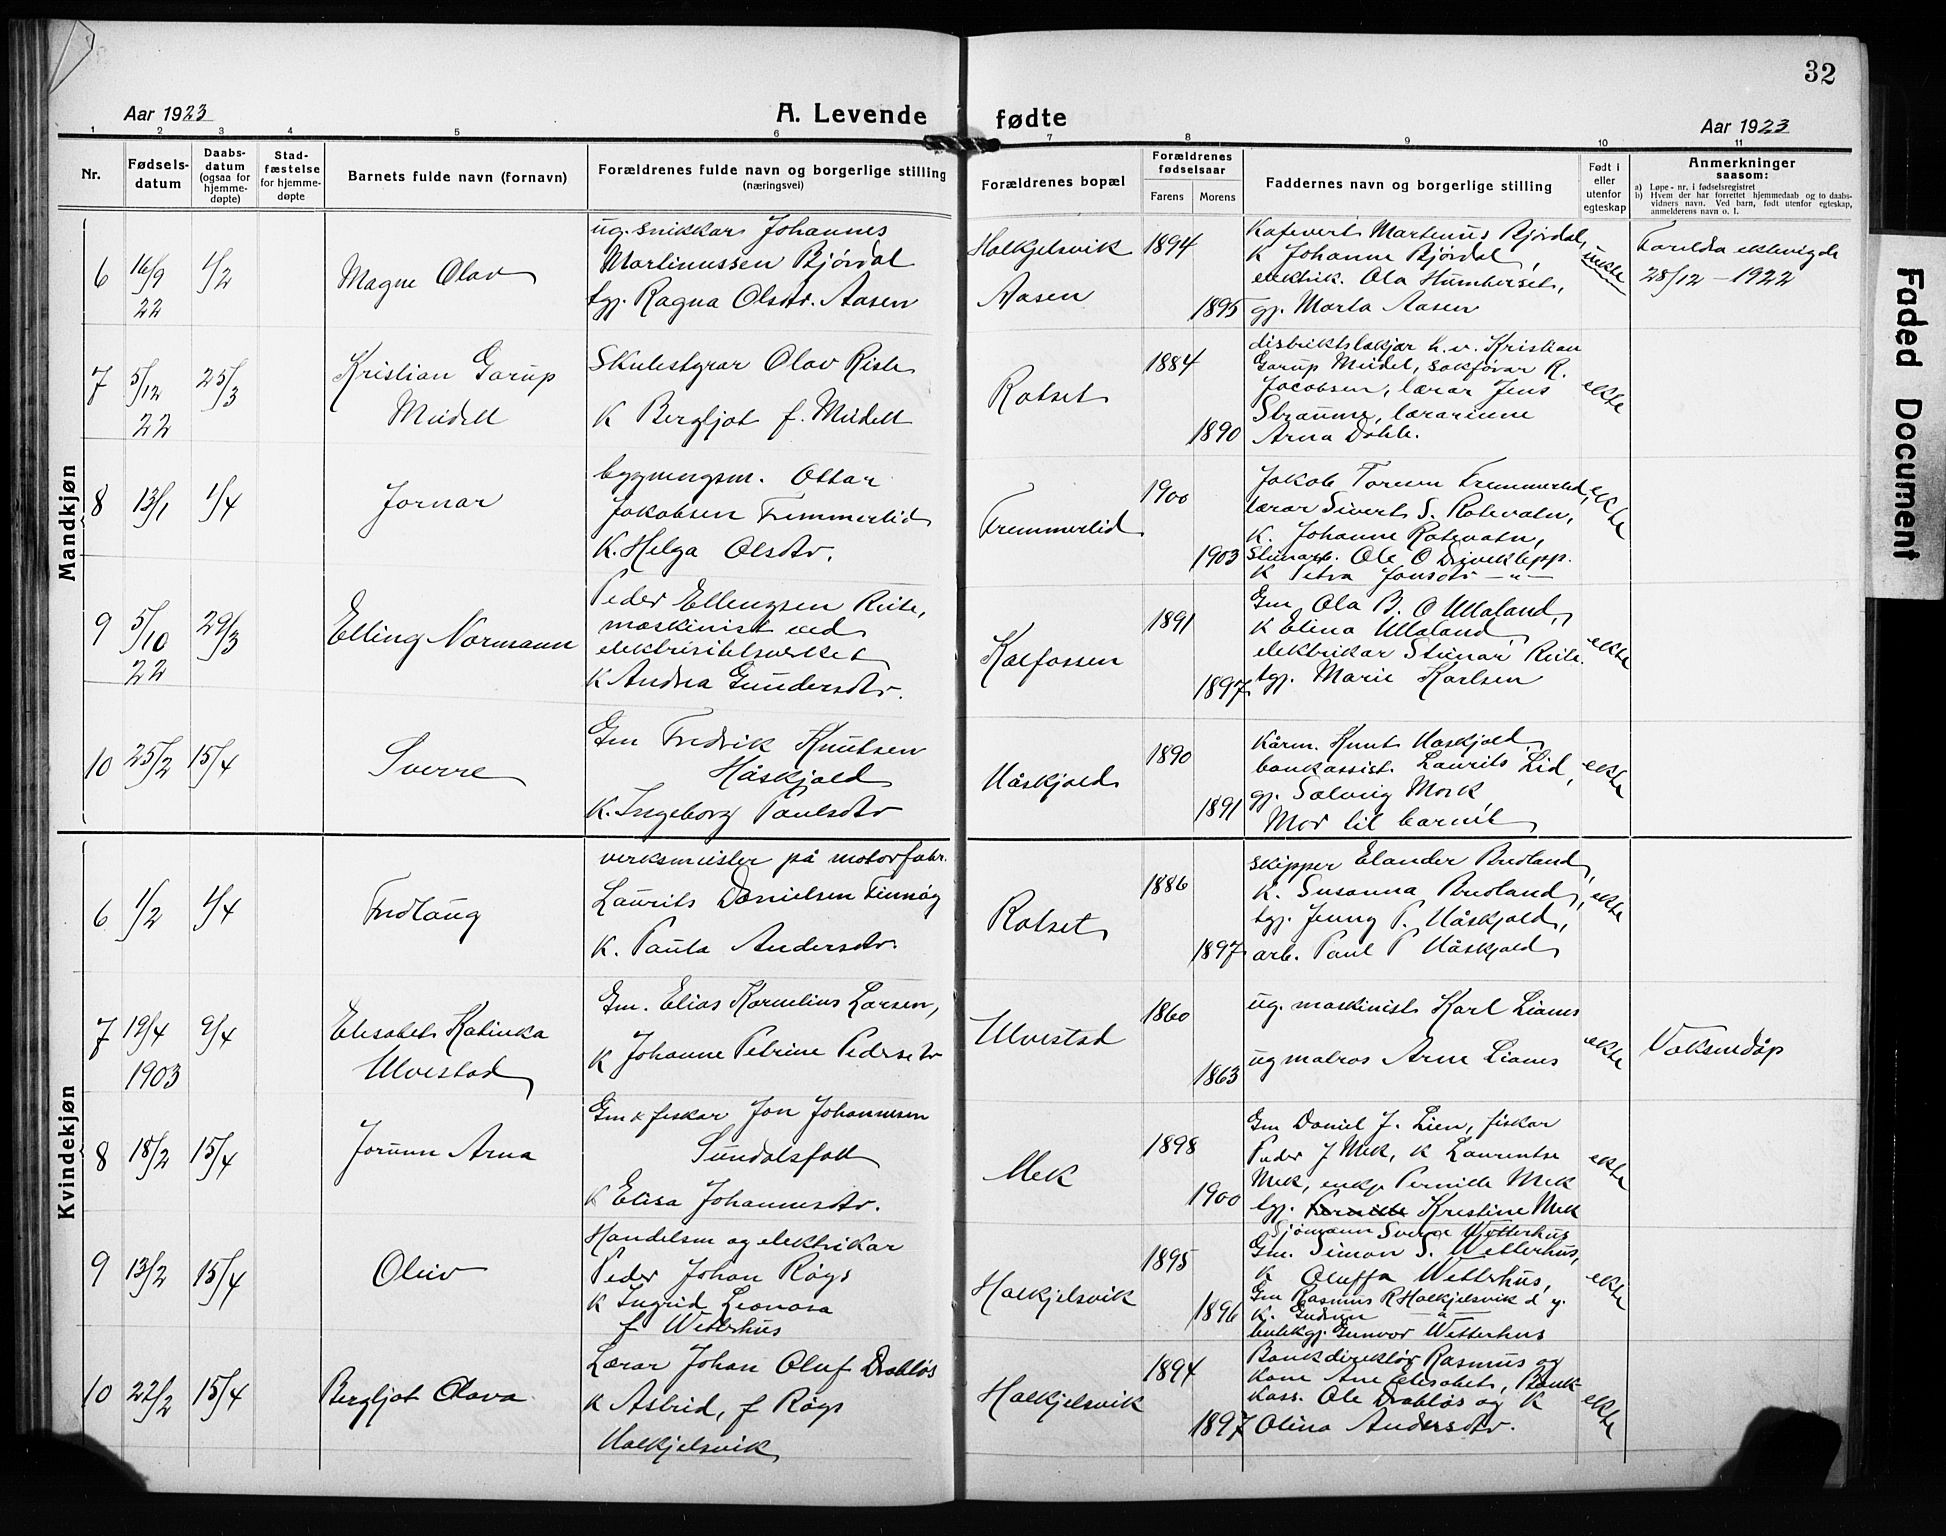 32
Aar 1923
A. Levende fødte
Aar 1923
1 2 3 4 5 6 7 8 9 10 11
Nr.
Fødsels-
datum
Daabs-
datum
(ogsaa for
hjemme-
døpte)
Stad-
fæstelse
for hjemme-
døpte
Barnets fulde navn (fornavn)
Forældrenes fulde navn og borgerlige stilling
(næringsvei)
Forældrenes bopæl
Forældrenes
fødselsaar
Farens Morens
Faddernes navn og borgerlige stilling
Født i
eller
utenfor
egteskap
Anmerkninger
saasom:
a) Løpe-nr. i fødselsregistret
b) Hvem der har forrettet hjemmedaab og to daabs-
vidners navn. Ved barn, født utenfor egteskap,
anmelderens navn o. l.
Faded Document
Mandkjøn
6 16/9 22 1/2 Magne Olav
ug. snikkar Johannes
Martinussen Bjørdal
tgp. Ragna Olsdtr. Aasen
Halkjelsvik
Aasen
1894
1895
Kafevert Martinus Bjørdal,
K Johanne Bjørdal,
elektrik. Ola Humberset,
gp. Marta Aasen
uekte
Foreldra ektevigde
28/12 - 1922
7 5/12 22 25/3 Kristian Garup
Meidell
Skulestyrar Olav Riste
K Bergljot f. Meidell
Rotset
1884
1890
distriktslækjar K. v. Kristian
Garup Meidel, sakførar R.
Jacobsen, lærar Jens
Straume, lærarinne
Arna Dahle.
ekte
8 13/1 1/4 Jornar
bygningsm. Ottar
Jakobsen Fremmerlid
K. Helga Olsdtr.
Fremmerlid
1900
1903
Jakob Fremmerlid,
lærar Sivert S. Rotevatn,
K. Johanne Rotevatn,
Steinarb. Ole O Driveklepp.
K Petra Jonsdtr —"—
ekte
9 5/10 22 29/3 Elling Normann
Peder Ellingsen Reite,
maskinist ved
elektrisitetsverket
K Andrea Gundersdtr.
Kalfossen
1891
1897
Gm Ola B. O Ullaland,
K Elina Ullaland,
elektrikar Steinar Reite.
tgp. Marie Karlsen
ekte
10 25/2 15/4 Sverre
Gm Fredrik Knutsen
Håskjold
K. Ingeborg Paulsdtr
Håskjold
1890
1891
Kårm. Knut Haskjold,
bankassist. Laurits Lid,
gp. Solveig Mork
Mor til barnet
ekte
Kvindekjøn
6 1/2 1/4 Fridlaug
verksmeister på motorfabr.
Laurits Danielsen Finnøy
K. Paula Andersdtr.
Rotset
1886
1897
skipper Elander Brudland,
K. Susanna Brudland,
tgp. Jenny P. Håskjold,
arb. Paul P Håskjold
ekte
7 19/4 1903 9/4 Elisabet Katinka
Ulvestad
Gm. Elias Kornelius Larsen,
K Johanne Petrine Pedersdtr
Ulvestad
1860
1863
ug. maskinist Karl Lianes
ug matros Arne Lianes
ekte
Vaksendåp
8 18/2 15/4 Jorunn Arna
Gm & fiskar Jon Johannesen
Sundalsfoll
K Elisa Johannesdtr.
Mek
1898
1900
Gm Daniel J. Lien, fiskar
Peder J Mek, K Laurentse
Mek, enkje Pernille Mek
tgp. Pernille Kristine Mek
ekte
9 13/2 15/4 Oleiv
Handelsm og elektrikar
Peder Johan Røys
K Ingrid Leonora
f Wetterhus
Halkjelsvik
1895
1896
Sjømann Sverre Wetterhus
Gm. Simon S. Wetterhus,
K Oluffa Wetterhus,
Gm Rasmus R Halkjelsvik d y.
K. Gudrun —"—
butikgp. Gunvor Wetterhus
ekte
10 22/2 15/4 Bergljot Olava
Lærar Johan Oluf Drabløs
K Astrid, f Røys
Halkjelsvik
Halkjelsvik
1894
1897
Bankdirektør Rasmus og
Kone Ane Elisabet, Bank-
kass. Ole Drabløs og K
Olina Andersdtr.
ekte